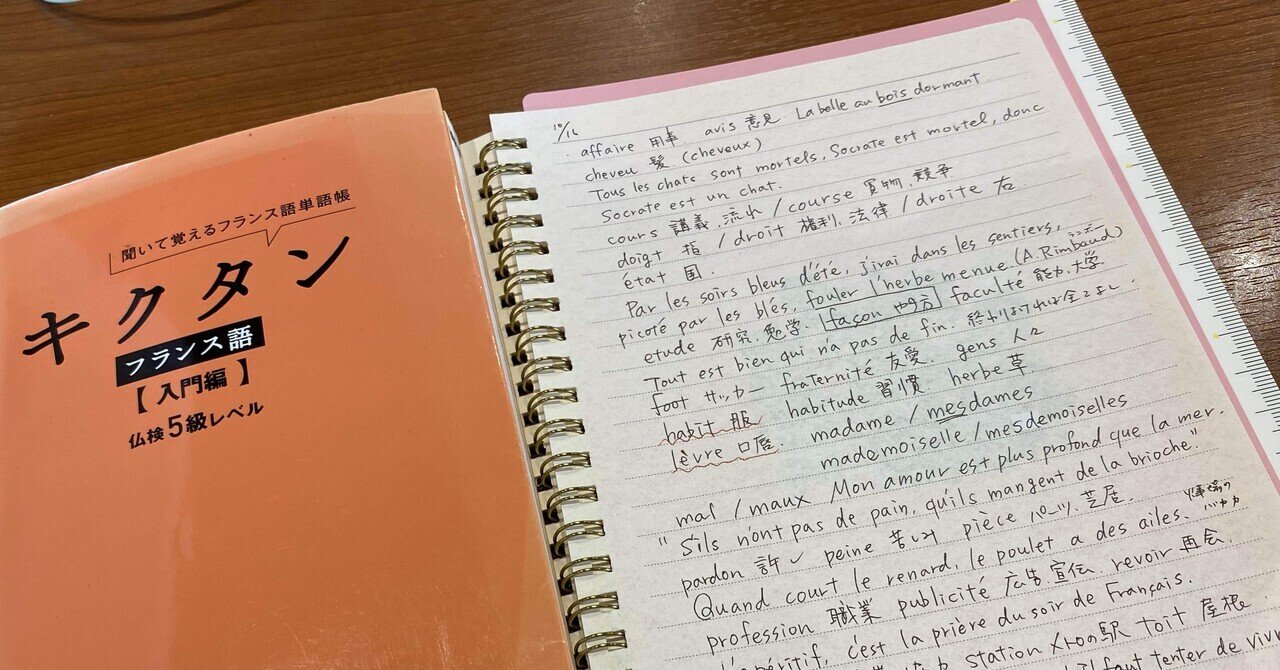 聞いて覚えるフランス語単語帳
キクタン
フランス語
【入門編】
仏検5級レベル
10/16
affaire 用事 avis 意見 La belle au bois dormant
cheveu 髪 (cheveux)
Tous les chats sont mortels, Socrate est mortel, donc
Socrate est un chat.
cours 講義、流れ / course 買物、競争
doigt 指 / droit 権利、法律 / droite 右
état 国
Par les soirs bleus d'été, j'irai dans les sentiers,
picoté par les blés, fouler l'herbe menue (A. Rimbaud) ランボー
etude 研究、勉学、façon やり方 faculté 能力、大学
Tout est bien qui n'a pas de fin. 終わりよければ全てよし.
foot サッカー fraternité 友愛 gens 人々
habit 服 habitude 習慣 herbe 草
lèvre 口唇. madame / mesdames
mademoiselle / mesdemoiselles
mal / maux Mon amour est plus profond que la mer.
"S'ils n'ont pas de pain, qu'ils mangent de la brioche."
pardon 許し peine 苦しみ pièce パーツ、芝居.
Quand court le renard, le poulet a des ailes.
profession 職業 publicité 広告宣伝 revoir 再会.
l'apéritif, c'est la prière du soir de Français.
station メトロの駅 toit 屋根
il faut tenter de viv